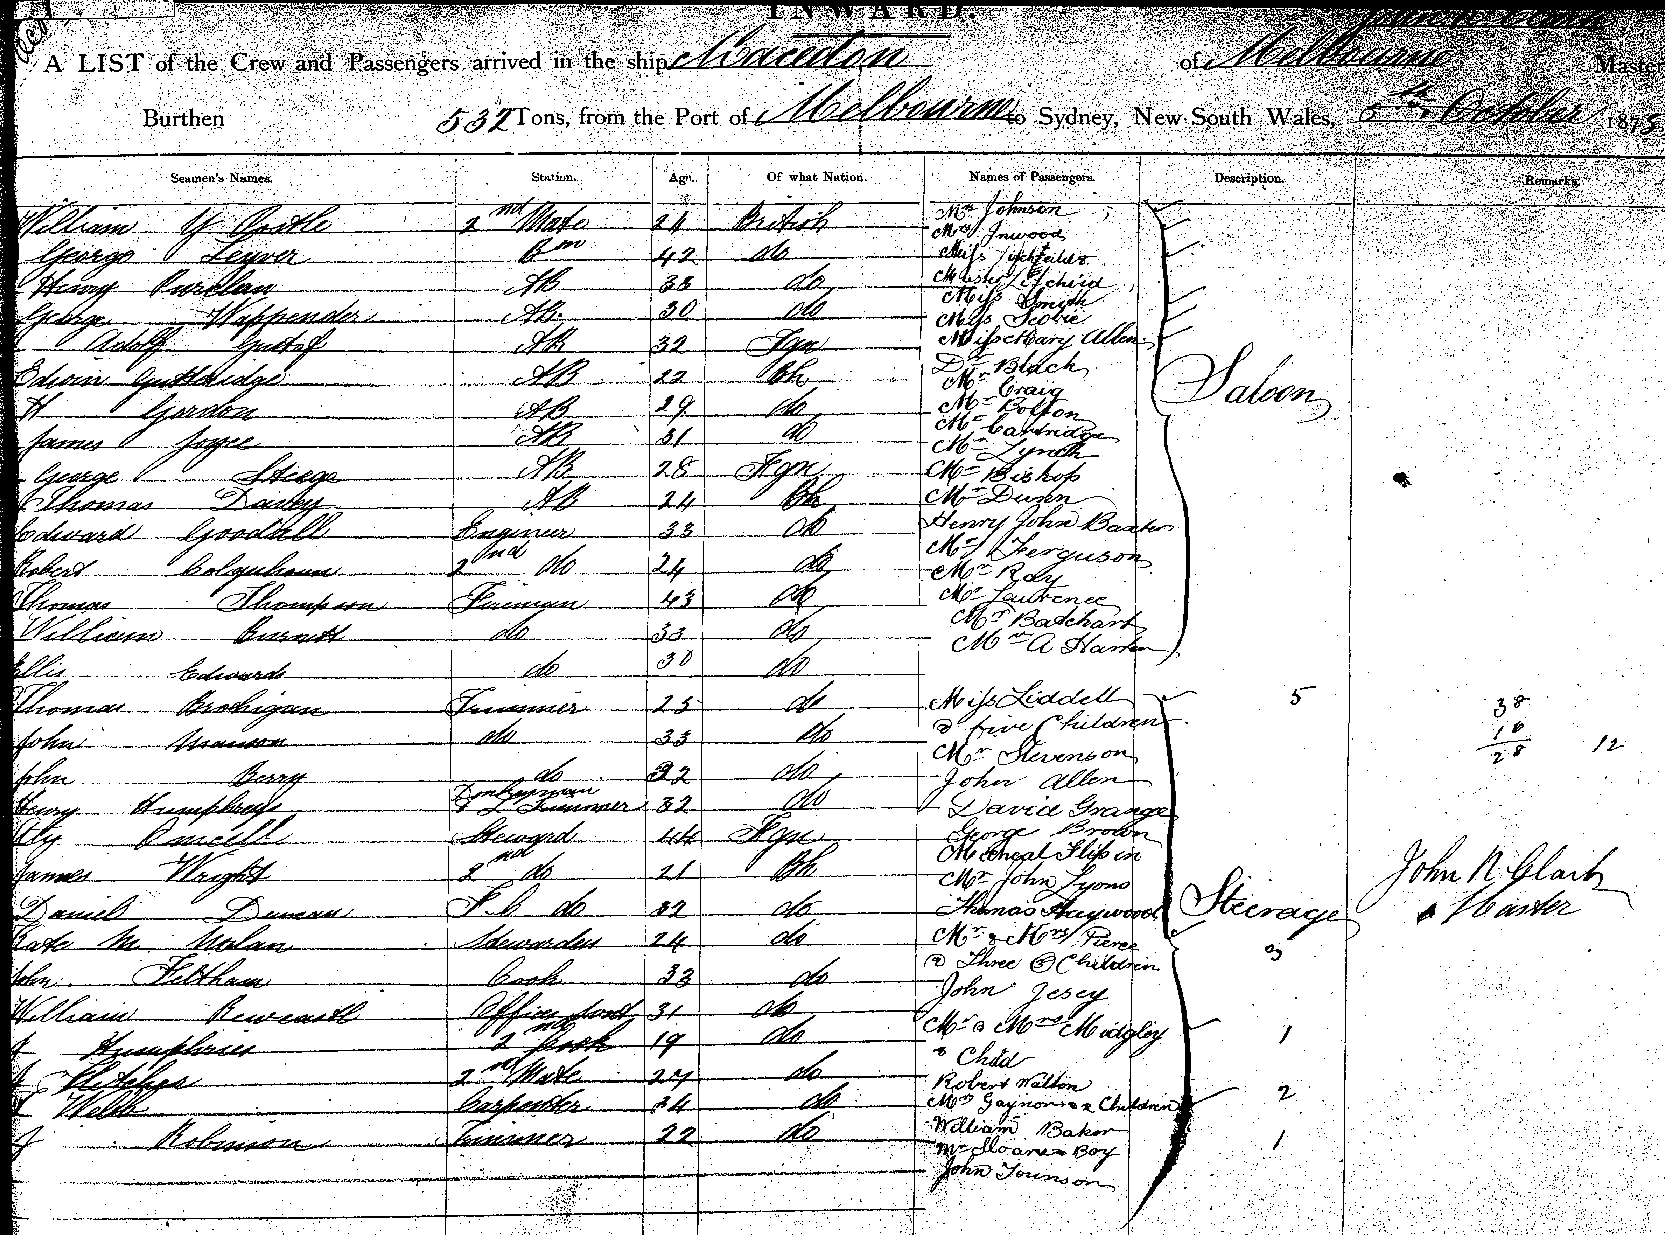 INWARD.
A LIST of the Crew and Passengers arrived in the ship Macedon of Melbourne Master
Burthen 532 Tons, from the Port of Melbourne to Sydney, New South Wales, October 1875
Seamen's Names. Station. Age. Of what Nation. Names of Passengers. Description. Remarks.
William 2nd Mate 24 British Mr Johnson
George Bm 42 do Mrs Inwood
Miss
Henry AB 38 do
George Wappender AB. 30 do Miss Smith
Miss Scobie
Adolf Gustaf AB 32 Fgn Miss Mary Allen
Edwin Gutteridge AB 22 Bh Dr Black
Mr Craig
H Gordon AB 29 do Mr Bolton
James Joyce AB 31 do Mr Cartridge
Mr Lynch
George Steege AB 28 Fgn Mr Bishop
Thomas AB 24 Bh Mr Dunn
Saloon
Edward Goodall Engineer 33 do Henry John Baxter
Mrs Ferguson
Robert Colquhoun 2nd do 24 do Mr Ray
Thomas Thompson Fireman 43 do Mr Lawrence
William Burnett do 33 do Mr Batchart
Mr A
Ellis Edwards do 30 do
Thomas Brohigan Trimmer 25 do Miss Liddell 5 38
& five Children 10
John do 33 do Mr Stevenson 28 12
John Berry do 22 do John Allen
Henry Humphreys Donkeyman & Trimmer 32 do David Grange
Steward 44 Fgn George Brown
Micheal Flip in
James Wright 2nd do 21 Bh Mr John Lyons John R Clark
Daniel Duncan F.C do 32 do Thomas Haywood Steerage Master
Kate M Nolan Stewardess 24 do Mr & Mrs Pierce
& Three Children 3
John Feltham Cook 33 do John Jesey
William Newcastle 31 do
Humphries 2nd Cook 19 do Mr & Mrs Midgley 1
& Child
2nd Mate 27 do Robert Walton
Webb Carpenter 34 do Mrs Gaynor & 2 Children 2
J Robinson Trimmer 22 do William Baker
Mr Sloane & Boy 1
John Tounson